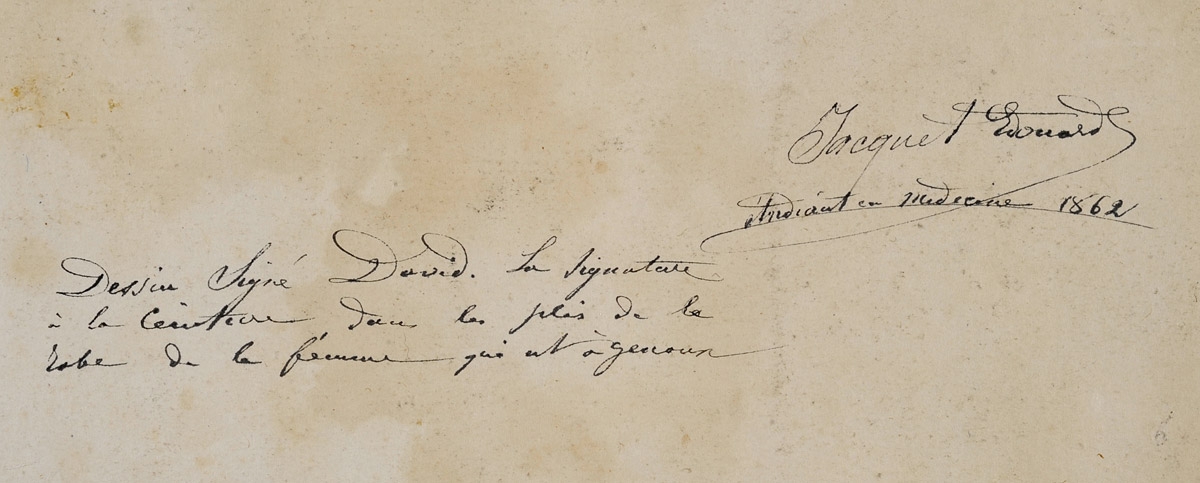 Jacquet Edouard
étudiant en medecine 1862
Dessin Signé David. La signature
à la Ceinture dans les plis de la
robe de la fémme qui est à genoux